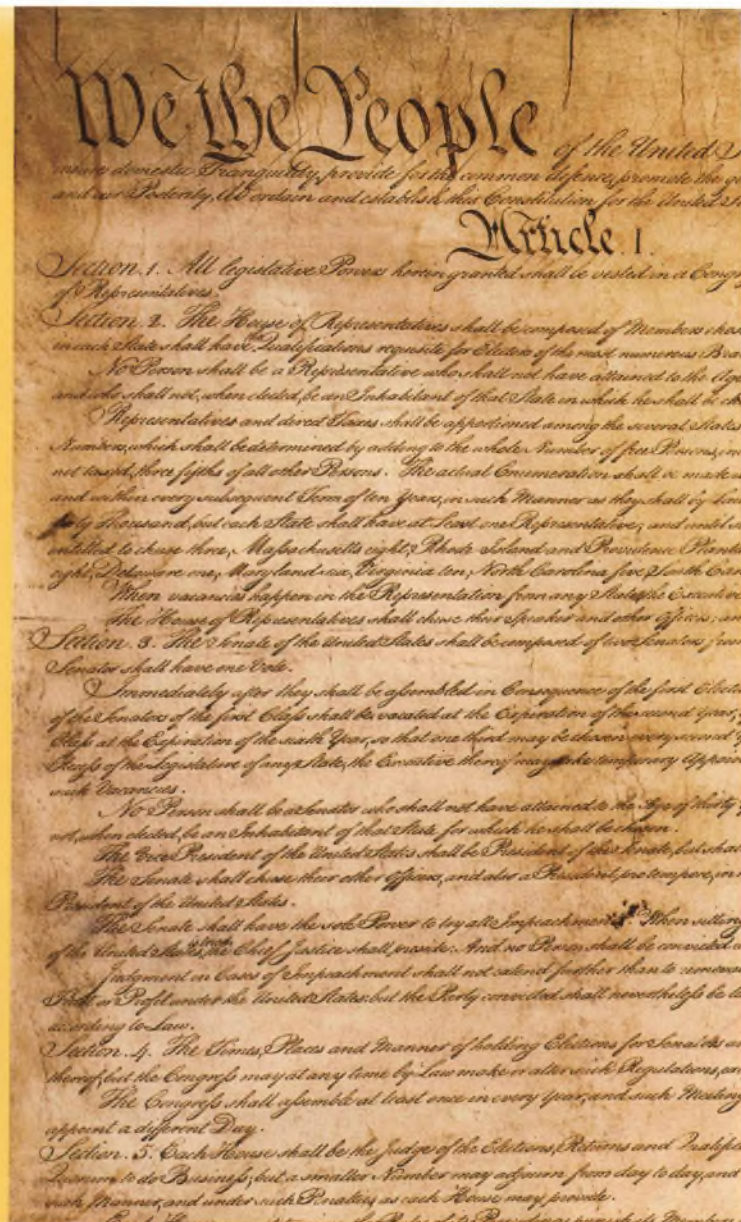 We the People of the United
insure domestic Tranquility, provide for the common defence, promote the
and our Posterity, do ordain and establish this Constitution for the United
Article. I.
Section. 1. All legislative Powers herein granted shall be vested in a Congre
of Representatives.
Section. 2. The House of Representatives shall be composed of Members chose
in each State shall have the Qualifications requisite for Electors of the most numerous Bra
No Person shall be a Representative who shall not have attained to the Age
and who shall not, when elected, be an Inhabitant of that State in which he shall be ch
Representatives and direct Taxes shall be apportioned among the several States
Numbers, which shall be determined by adding to the whole Number of free Persons, inc
not taxed, three fifths of all other Persons. The actual Enumeration shall be made
and within every subsequent Term of ten Years, in such Manner as they shall by Law
forty Thousand, but each State shall have at Least one Representative; and until su
entitled to chuse three, Massachusetts eight, Rhode Island and Providence Planta
eight, Delaware one, Maryland six, Virginia ten, North Carolina five, South Car
When vacancies happen in the Representation from any State, the Executive
The House of Representatives shall chuse their Speaker and other Officers; an
Section. 3. The Senate of the United States shall be composed of two Senators from
Senator shall have one Vote.
Immediately after they shall be assembled in Consequence of the first Electi
of the Senators of the first Class shall be vacated at the Expiration of the second Year,
Class at the Expiration of the sixth Year, so that one third may be chosen every second Y
Recess of the Legislature of any State, the Executive thereof may make temporary Appoin
such Vacancies.
No Person shall be a Senator who shall not have attained to the Age of thirty
not, when elected, be an Inhabitant of that State for which he shall be chosen.
The Vice President of the United States shall be President of the Senate, but shal
The Senate shall chuse their other Officers, and also a President pro tempore, in
President of the United States.
The Senate shall have the sole Power to try all Impeachments. When sitting
of the United States is tried, the Chief Justice shall preside: And no Person shall be convicted
Judgment in Cases of Impeachment shall not extend further than to removal
Trust or Profit under the United States: but the Party convicted shall nevertheless be
according to Law.
Section. 4. The Times, Places and Manner of holding Elections for Senators an
thereof; but the Congress may at any time by Law make or alter such Regulations, ex
The Congress shall assemble at least once in every Year, and such Meeting
appoint a different Day.
Section. 5. Each House shall be the Judge of the Elections, Returns and Qualific
Quorum to do Business; but a smaller Number may adjourn from day to day, and
such Manner, and under such Penalties as each House may provide.